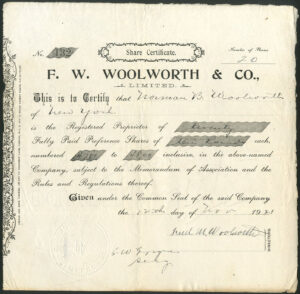 No. 133 Share Certificate. Number of Shares
20
F. W. WOOLWORTH & CO.,
LIMITED.
This is to Certify that Norman B. Woolworth
of New York
is the Registered Proprietor of Twenty
Fully Paid Preference Shares of each,
numbered to inclusive, in the above-named
Company, subject to the Memorandum of Association and the
Rules and Regulations thereof.
Given under the Common Seal of the said Company
the day of Nov 1921
Fred M. Woolworth
Secy